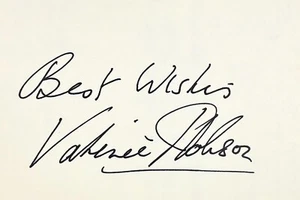 Best Wishes
Valerie Hobson